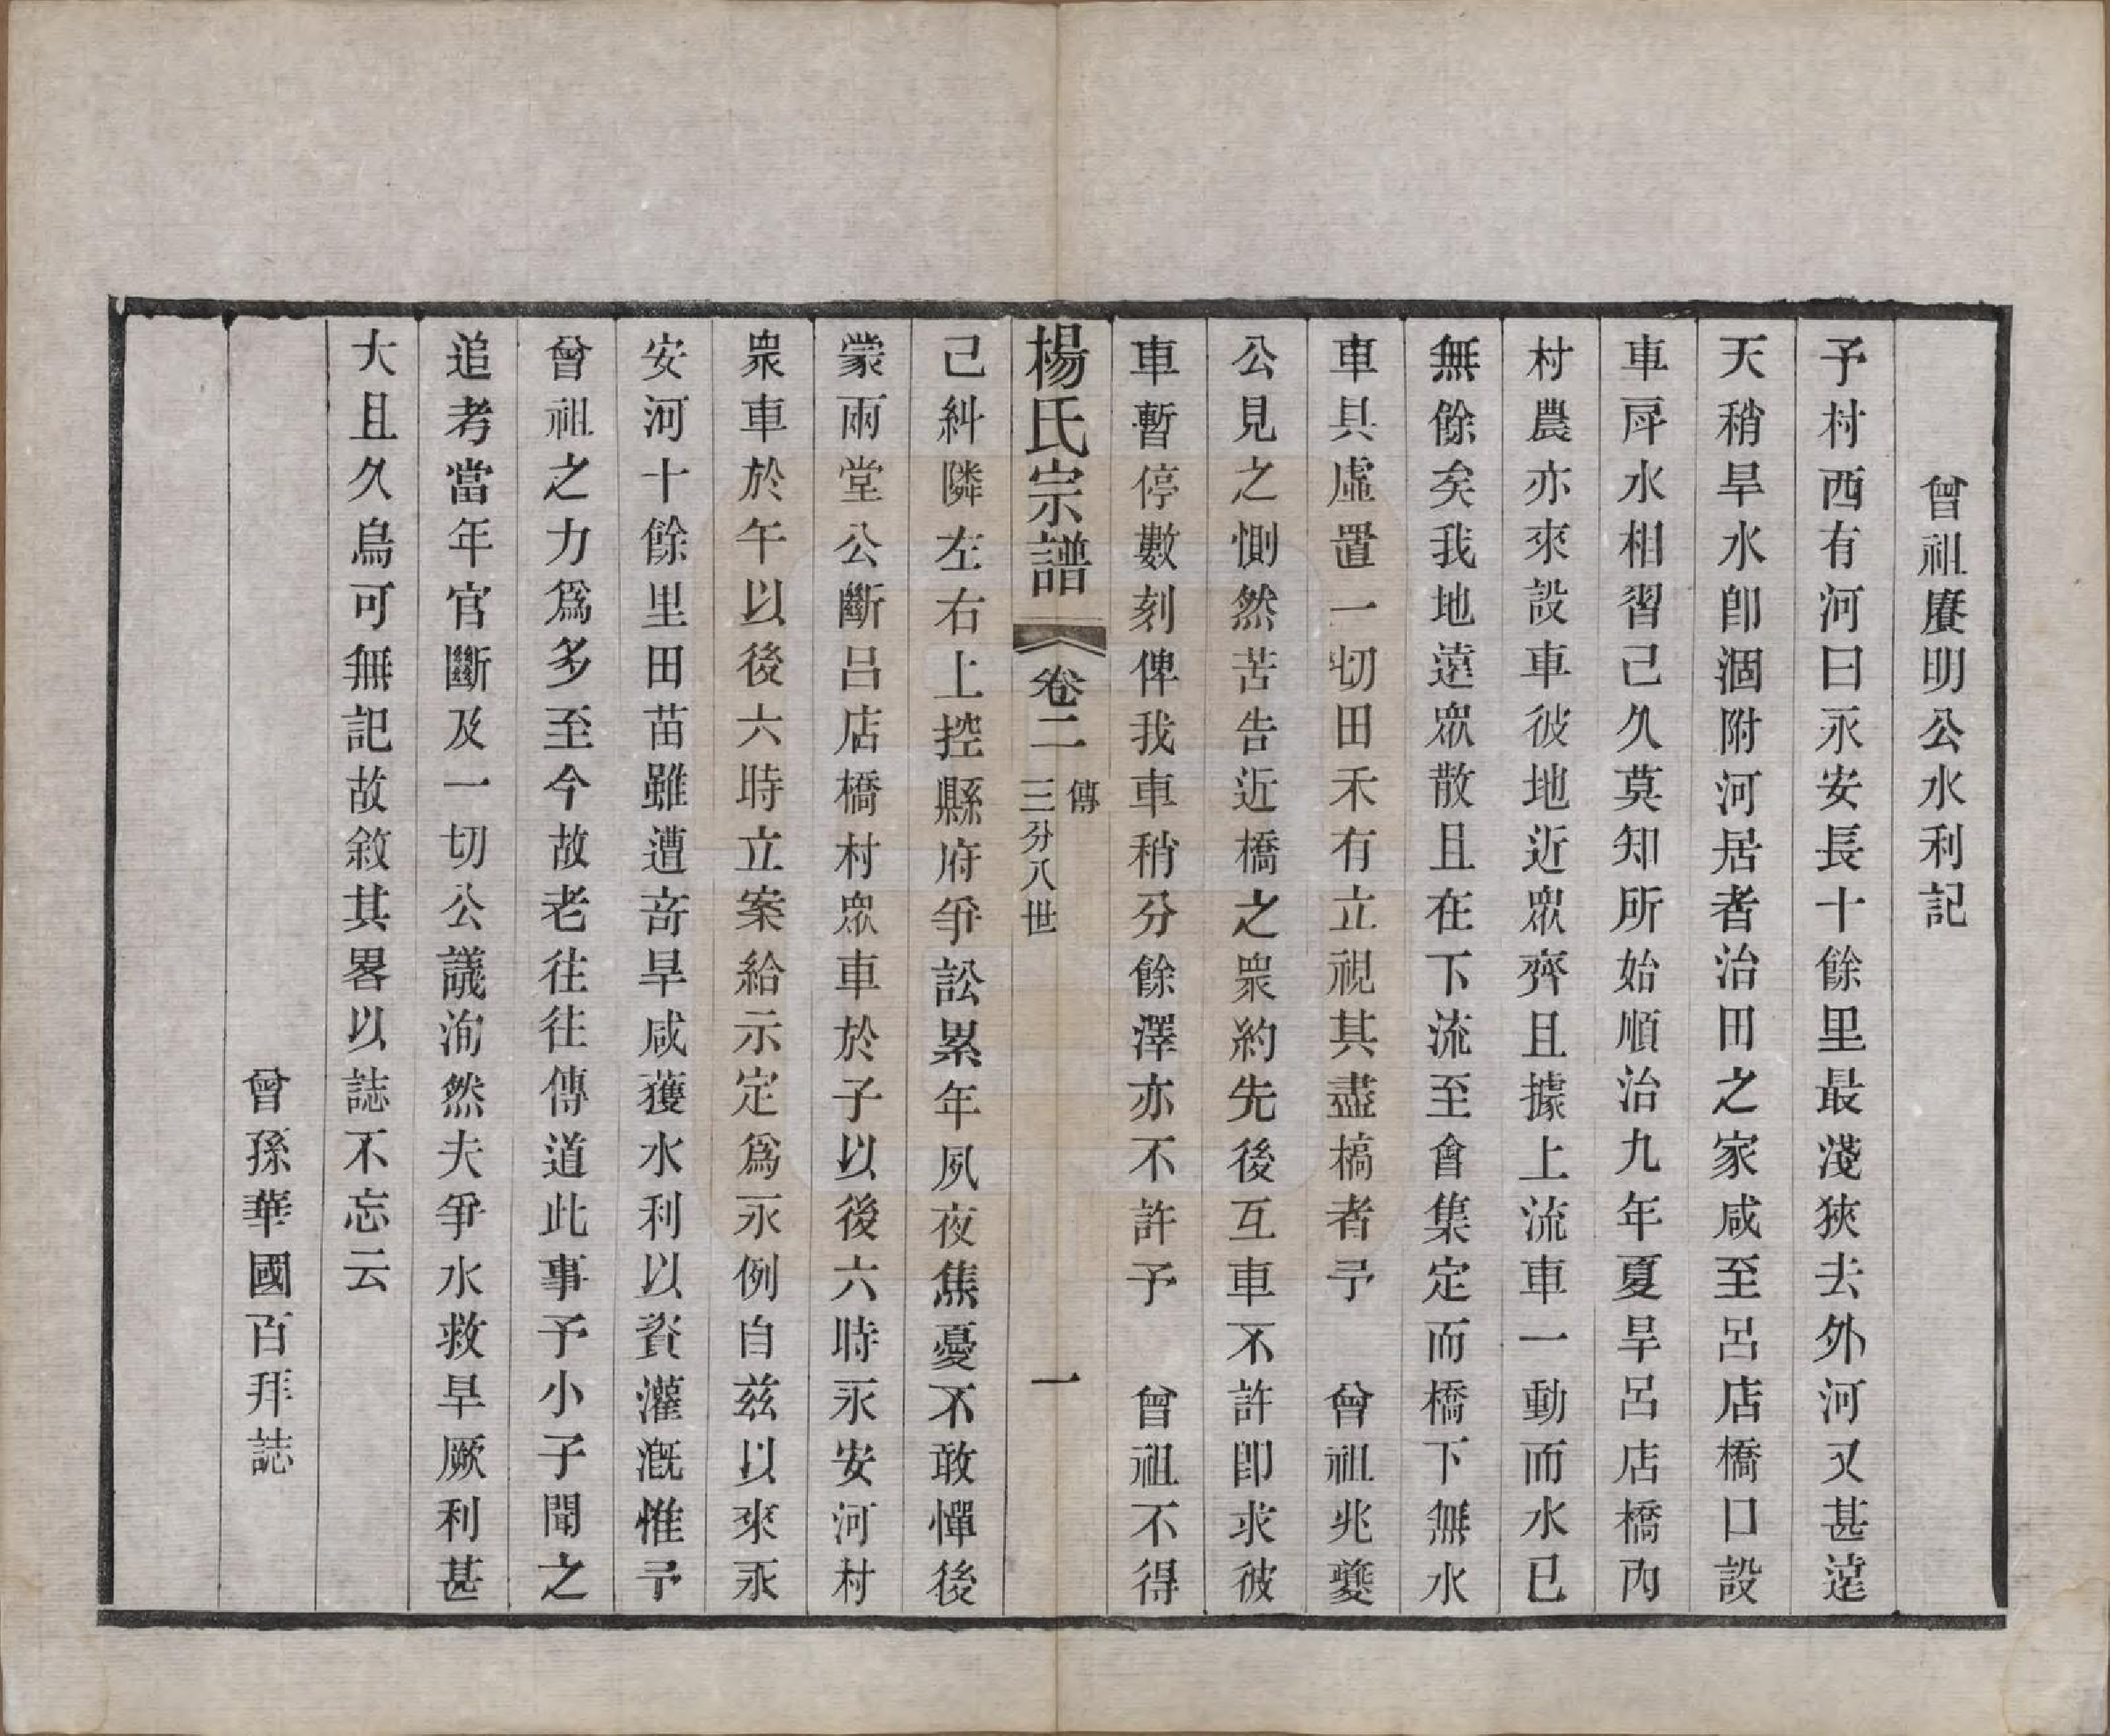 曾祖賡明公水利記
予村西有河曰永安長十餘里最淺狹去外河又甚遠
天稍旱水卽涸附河居者治田之家咸至呂店橋口設
車戽水相習己久莫知所始順治九年夏旱呂店橋內
村農亦來設車彼地近眾齊且據上流車一動而水已
無餘矣我地遠眾散且在下流至會集定而橋下無水
車具虛置一切田禾有立視其盡槁者予　曾祖兆夔
公見之惻然苦告近橋之眾約先後互車不許卽求彼
車暫停數刻俾我車稍分餘澤亦不許予　曾祖不得
楊氏宗譜　卷二　傳　三分八世　一
己糾隣左右上控縣府爭訟累年夙夜焦憂不敢憚後
蒙兩堂公斷呂店橋村眾車於子以後六時永安河村
眾車於午以後六時立案給示定爲永例自兹以來永
安河十餘里田苗雖遭奇旱咸獲水利以資灌漑惟予
曾祖之力爲多至今故老往往傳道此事予小子聞之
追考當年官斷及一切公議洵然夫爭水救旱厥利甚
大且久烏可無記故敘其畧以誌不忘云
曾孫華國百拜誌